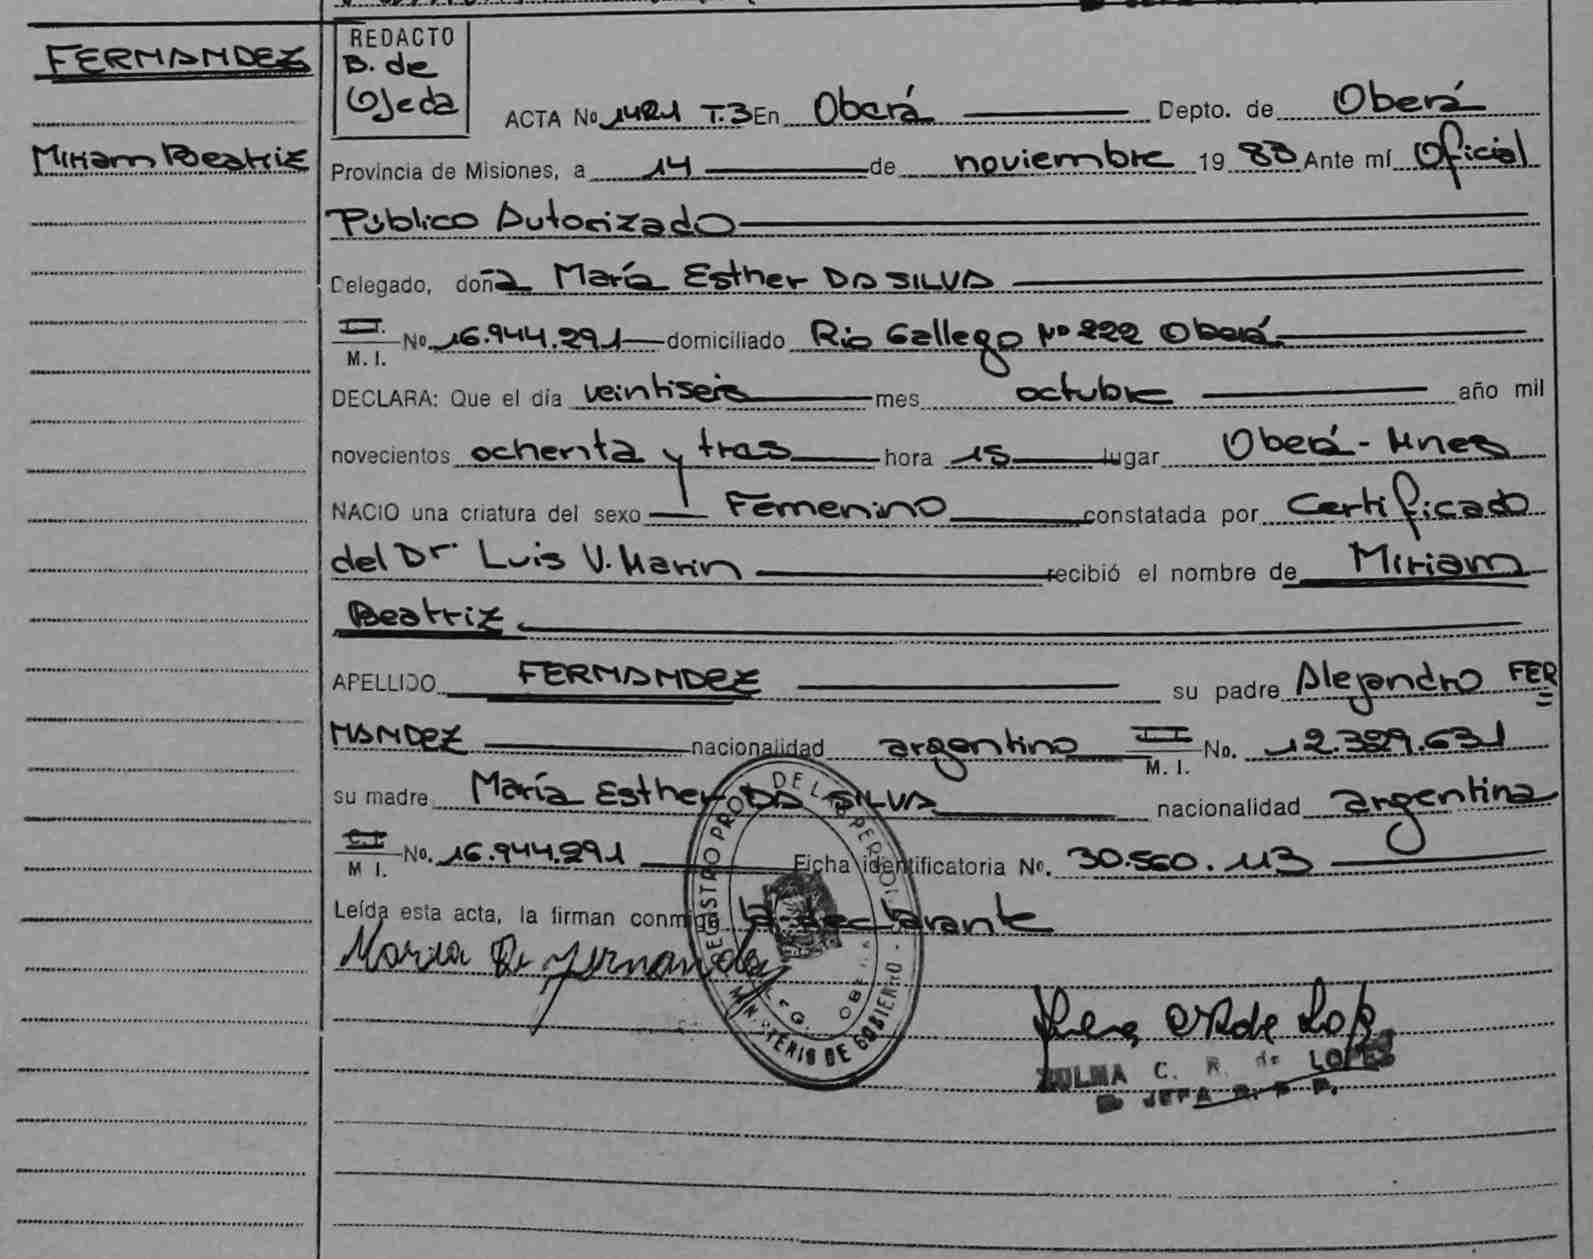 FERNANDEZ
Miriam Beatriz
REDACTO
B. de
Ojeda
ACTA No 1421 T.3 En Oberá Depto. de Oberá
Provincia de Misiones, a 14 de noviembre 1983 Ante mí Oficial
Público Autorizado
Delegado, doña María Esther DA SILVA
M. I. No 16.944.291 domiciliado Rio Gallego Nº 222 Oberá
DECLARA: Que el día veintiseis mes octubre año mil
novecientos ochenta y tres hora 15 lugar Oberá - Mnes
NACIO una criatura del sexo Femenino constatada por Certificado
del Dr. Luis V. Marin recibió el nombre de Miriam
Beatriz
APELLIDO FERNANDEZ su padre Alejandro FER
NANDEZ nacionalidad argentino M. I. No. 12.329.631
su madre María Esther DA SILVA nacionalidad argentina
C.I. M I. No. 16.944.291 Ficha identificatoria No. 30.560.113
Leída esta acta, la firman conmigo la declarante
Maria D. Fernandez
REGISTRO PROV. DE LAS PERSONAS
MINISTERIO DE GOBIERNO
ZULMA C. R. de LOPEZ
JEFA